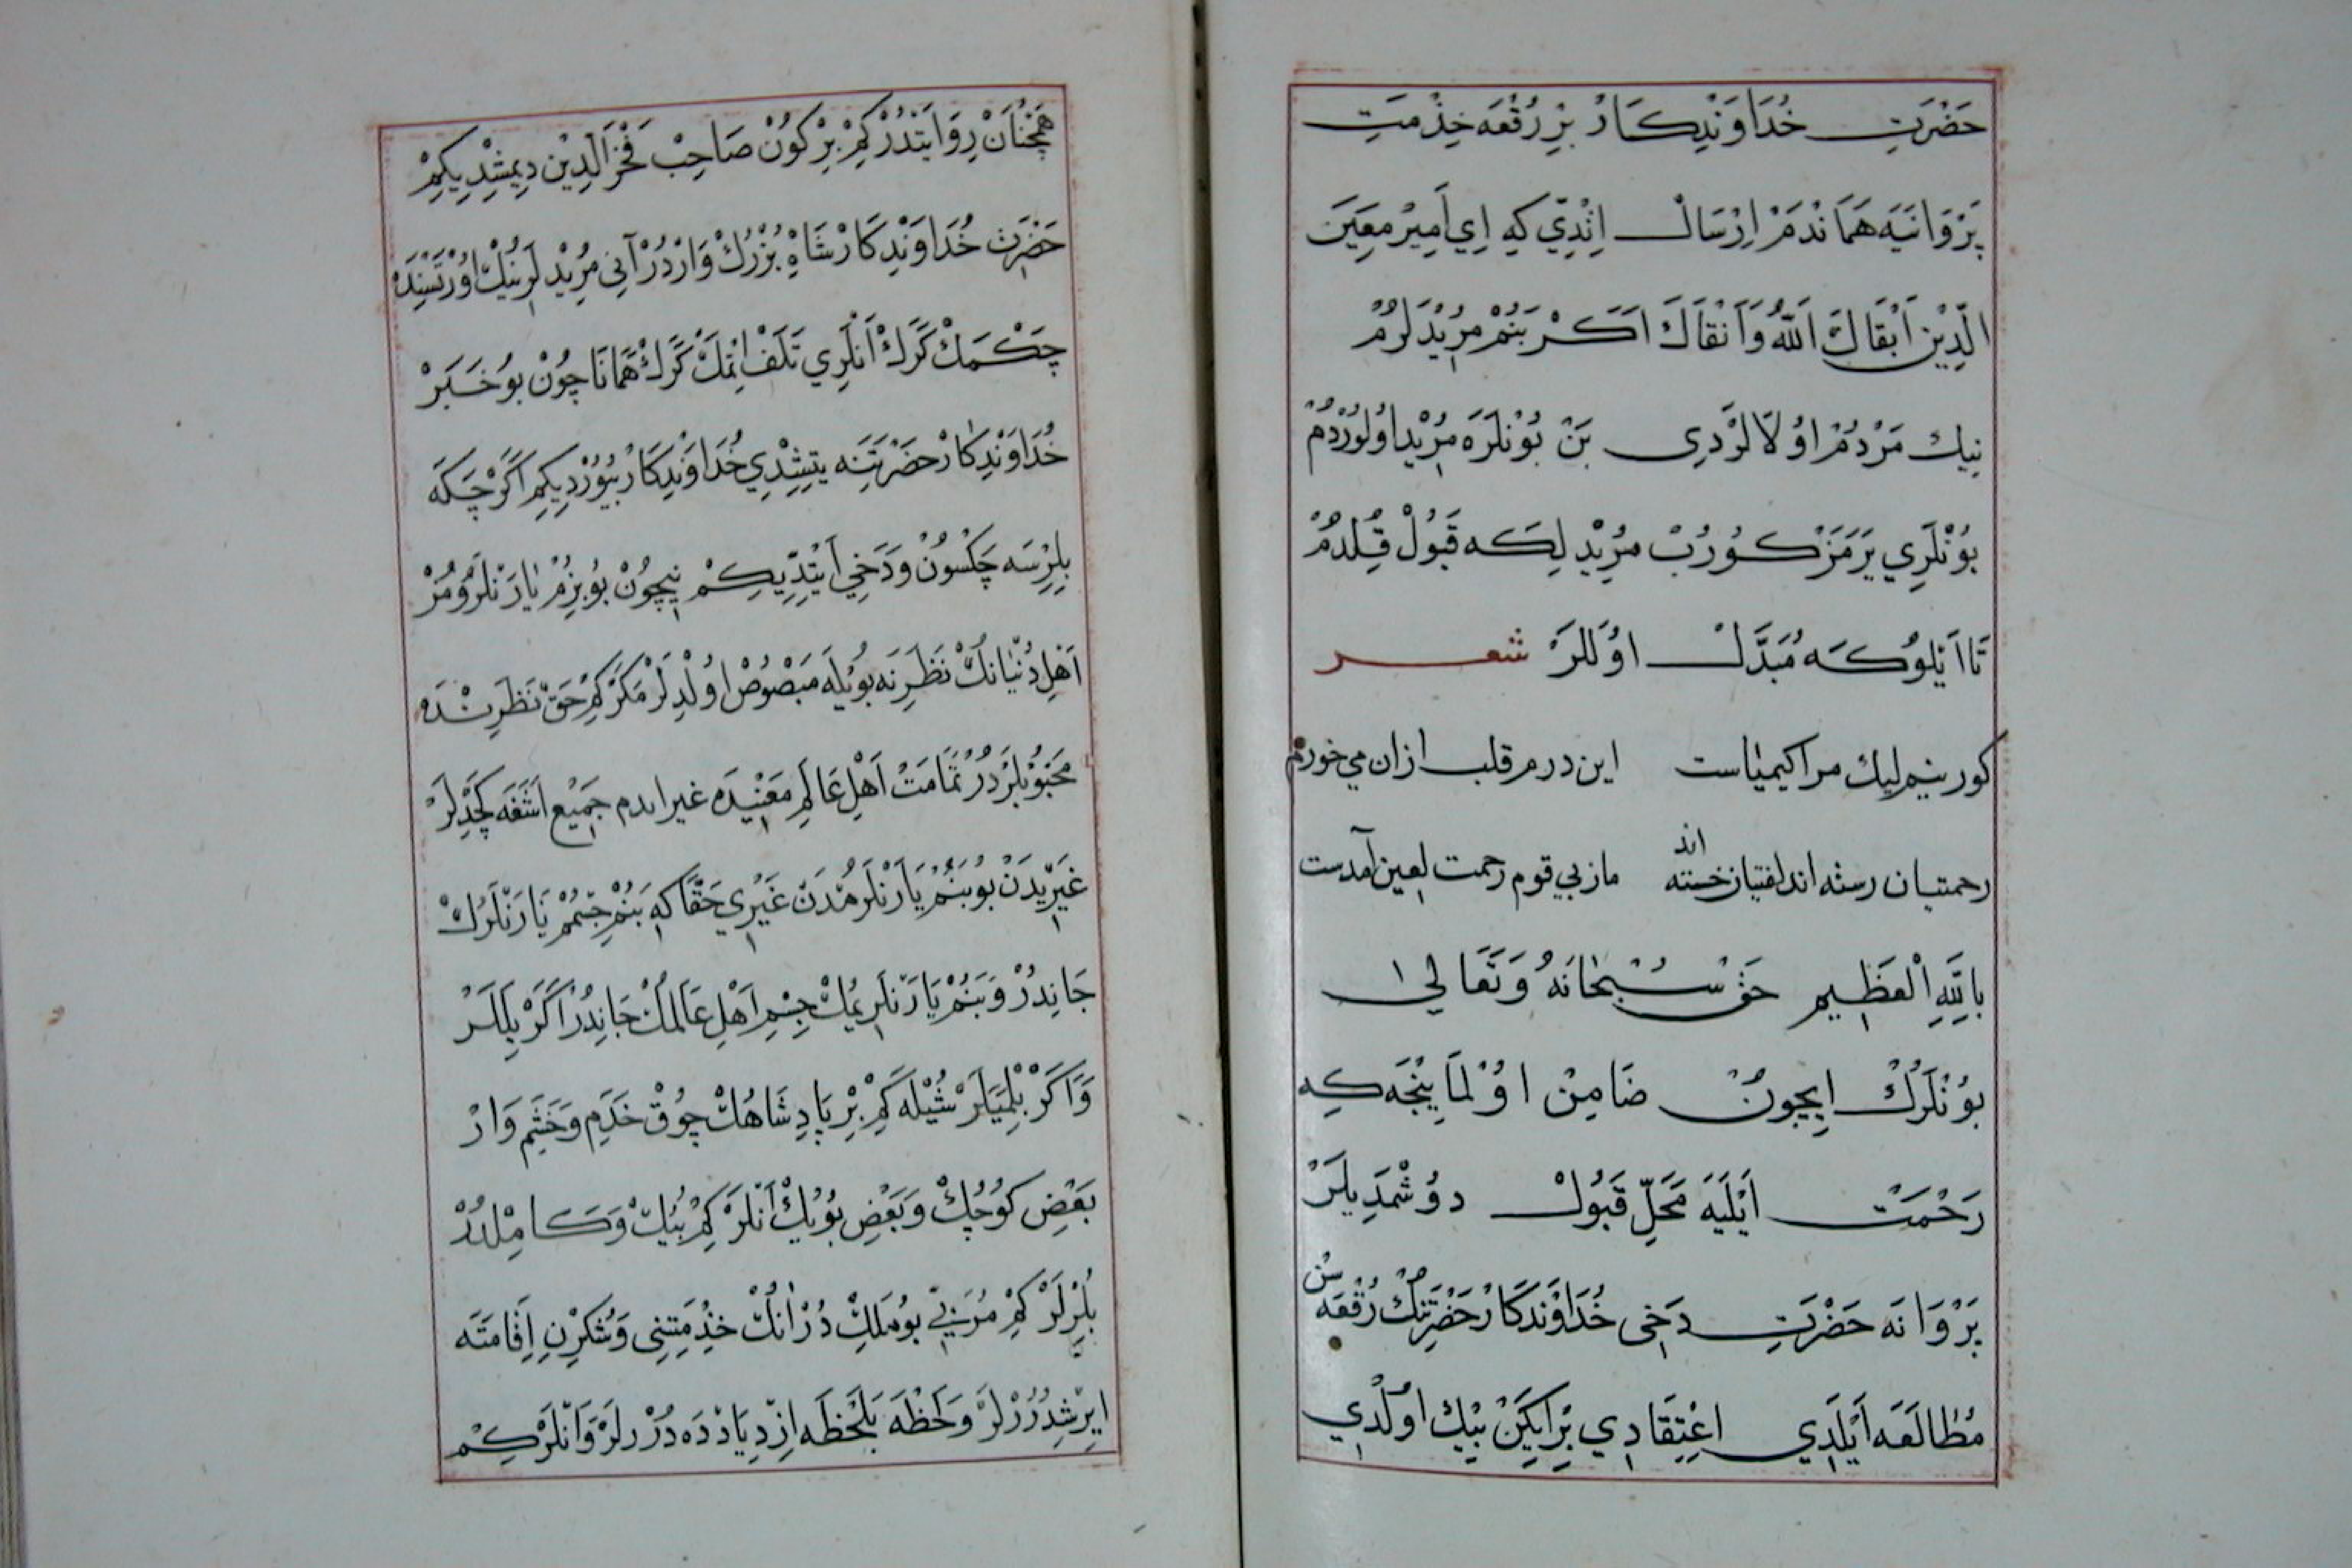 حَضْرَتِ خُدَاوَنْدِكَارْ بِرْ رُقْعَه خِذْمَتِ
پَرْوَانَيَه هَمَانْدَمْ اِرْسَالْ اِتْدِي كِه اِي اَمِيرْ مُعِينَ
الدِّيْنِ اَبْقَاكَ اَللّٰهُ وَاَنْقَاكَ اَكَرْ بَنُمْ مُرِيْدْلَرُمْ
نِيكْ مَرْدُمْ اوُلَالَرْدِى بَنْ بُونْلَرَه مُرِيْد اوُلُورْدُمْ
بُونْلَرِي يَرَمَزْ كُورُبْ مُرِيْدْلِكَه قَبُولْ قِلْدُمْ
تَا اَيْلُوكَه مُبَدَّلْ اوُلَلَرْ شعر
كور بنيم ليك مرا كيمياست اين درم قلب ازان مي خورم
رحمتيان رسته اند لفتيان خسته اند ما ز بي قوم رحمت لعين آمدست
بِاللّٰهِ الْعَظِيمِ حَقْ سُبْحَانَهُ وَتَعَالٰى
بُونْلَرُكْ اِيچُونْ ضَامِنْ اوُلْمَاينْجَه كِه
رَحْمَتْ اَيْلَيَه مَحَلِّ قَبُولْ دوُشْمَدِيلَرْ
پَرْوَانَه حَضْرَتِ دَخِى خُدَاوَنْدَكَارْ حَضْرَتِنُكْ رُقْعَه سُنْ
مُطَالَعَه اَيْلَدِي اِعْتِقَادِي بِرْ اِيكَنْ بِيكْ اوُلْدِي
هَمْچُنَانْ رِوَايَتْدُرْ كِمْ بِرْ كُونْ صَاحِبْ فَخْرُ الَدِيْن دِيمِشْدِيكِمْ
حَضْرَتْ خُدَاوَنْدِكَارْ شَاهِ بُزْرُكْ وَارْدُرْ آنِى مُرِيْدْلَرِنِيكْ اوُرْتَسِنْدَنْ
چَكْمَكْ كَرَكْ اَنْلَرِي تَلَفْ اِتْمَكْ كَرَكْ هَمَانَا چُونْ بُو خَبَرْ
خُدَاوَنْدِكَارْ حَضْرَتِنَه يِتِشْدِي خُدَاوَنْدِكَارْ بُيُورْدِيكِمْ اَكَرْ چَكَه
بِلِرْسَه چَكْسُونْ وَدَخِي اَيْتِدِّيكِمْ نِيچُونْ بُو بِزِمْ يَارَنْلَرُومُزْ
اَهْلِ دُنْيَانُكْ نَظَرِنَه بُويْلَه مَبْصُوصْ اوُلْدِلَرْ مَكَرْ كِمْ حَقْ نَظَرِنْدَه
مَحْبُوبْلَرْدُرْ تَمَامَتْ اَهْلِ عَالَمِ مَعْنِيْدَه غير اندم جَمِيْع اَشَغَه كَچَدِلَرْ
غَيْرِيْدَنْ بُو بَنُمْ يَارَنْلَرُمْدَنْ غَيْرِي حَقَّا كِه بَنُمْ جِسْمُمْ يَارَنْلَرُكْ
جَانِيدُرْ وَبَنُمْ يَارَنْلَرِيمُكْ جِسْمِ اَهْلِ عَالَمُكْ جَانِدُرْ اَكَرْ بِلَلَرْ
وَاَكَرْ بِلْمَيَلَرْ شُيْلَه كِمْ بِرْ پَادِشَاهُكْ چُوقْ خَدَمِ وَحَشَمِ وَارْ
بَعْضِ كُوچُكْ وَبَعْضِ بُويُكْ اَنْلَرْ كِمْ بُيُكْ وَكَامِلْدُرْ
بِلُرْلَرْ كِمْ مُرَبِّى بُو مَلِكْ دُرْ اَنُكْ خِذْمَتِنِى وَشُكْرِنِ اِقَامَتَه
اِيرِشْدُرُرْلَرْ وَلَحْظَه بَلَحْظَه اِزْدِيَادْدَه دُرْرلَرْ وَاَنْلَرْكِمْ